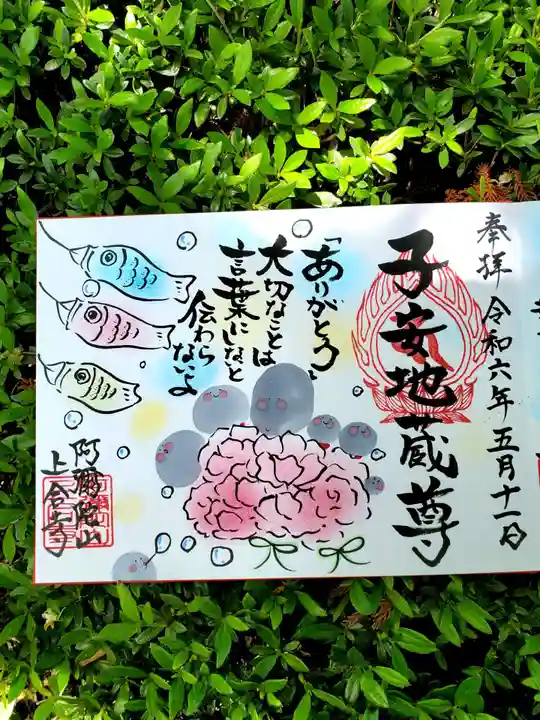 奉拝 令和六年五月十一日
子安地蔵尊
「ありがとう」
大切なことは
言葉にしないと
伝わらないよ
阿彌陀山
上合寺